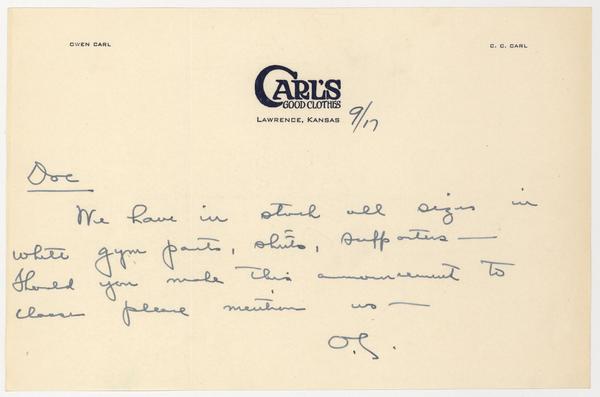 OWEN CARL
C. C. CARL
CARL'S
GOOD CLOTHES
LAWRENCE, KANSAS 9/17
Doc
We have in stock all sizes in
white gym pants, shirts, supporters —
Should you make this announcement to
classes please mention us —